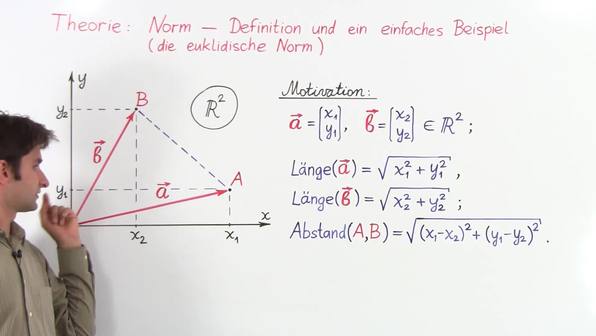 Theorie: Norm — Definition und ein einfaches Beispiel
(die euklidische Norm)
y
y₂
B
ℝ²
b⃗
A
y₁
a⃗
x₂
x₁
x
Motivation:
a⃗ = [x₁ y₁], b⃗ = [x₂ y₂] ∈ ℝ²;
Länge(a⃗) = √(x₁² + y₁²),
Länge(b⃗) = √(x₂² + y₂²);
Abstand(A,B) = √((x₁-x₂)² + (y₁-y₂)²).